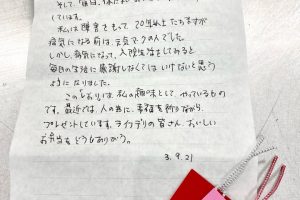 そして、「毎日、
しています。
私は障害をもって20年以上たちますが
病気になる前は、元気でうのんでした。
しかし、病気になって、入院生活をしてみると
毎日の生活に感謝しなくてはいけないと思う
ようになりました。
このしおりは、私の趣味として、やっているもの
です。最近では、人の為に、幸福を祈りながら、
プレゼントしています。ライフデリの皆さん、おいしい
お弁当をどうもありがとう。
3.9.21